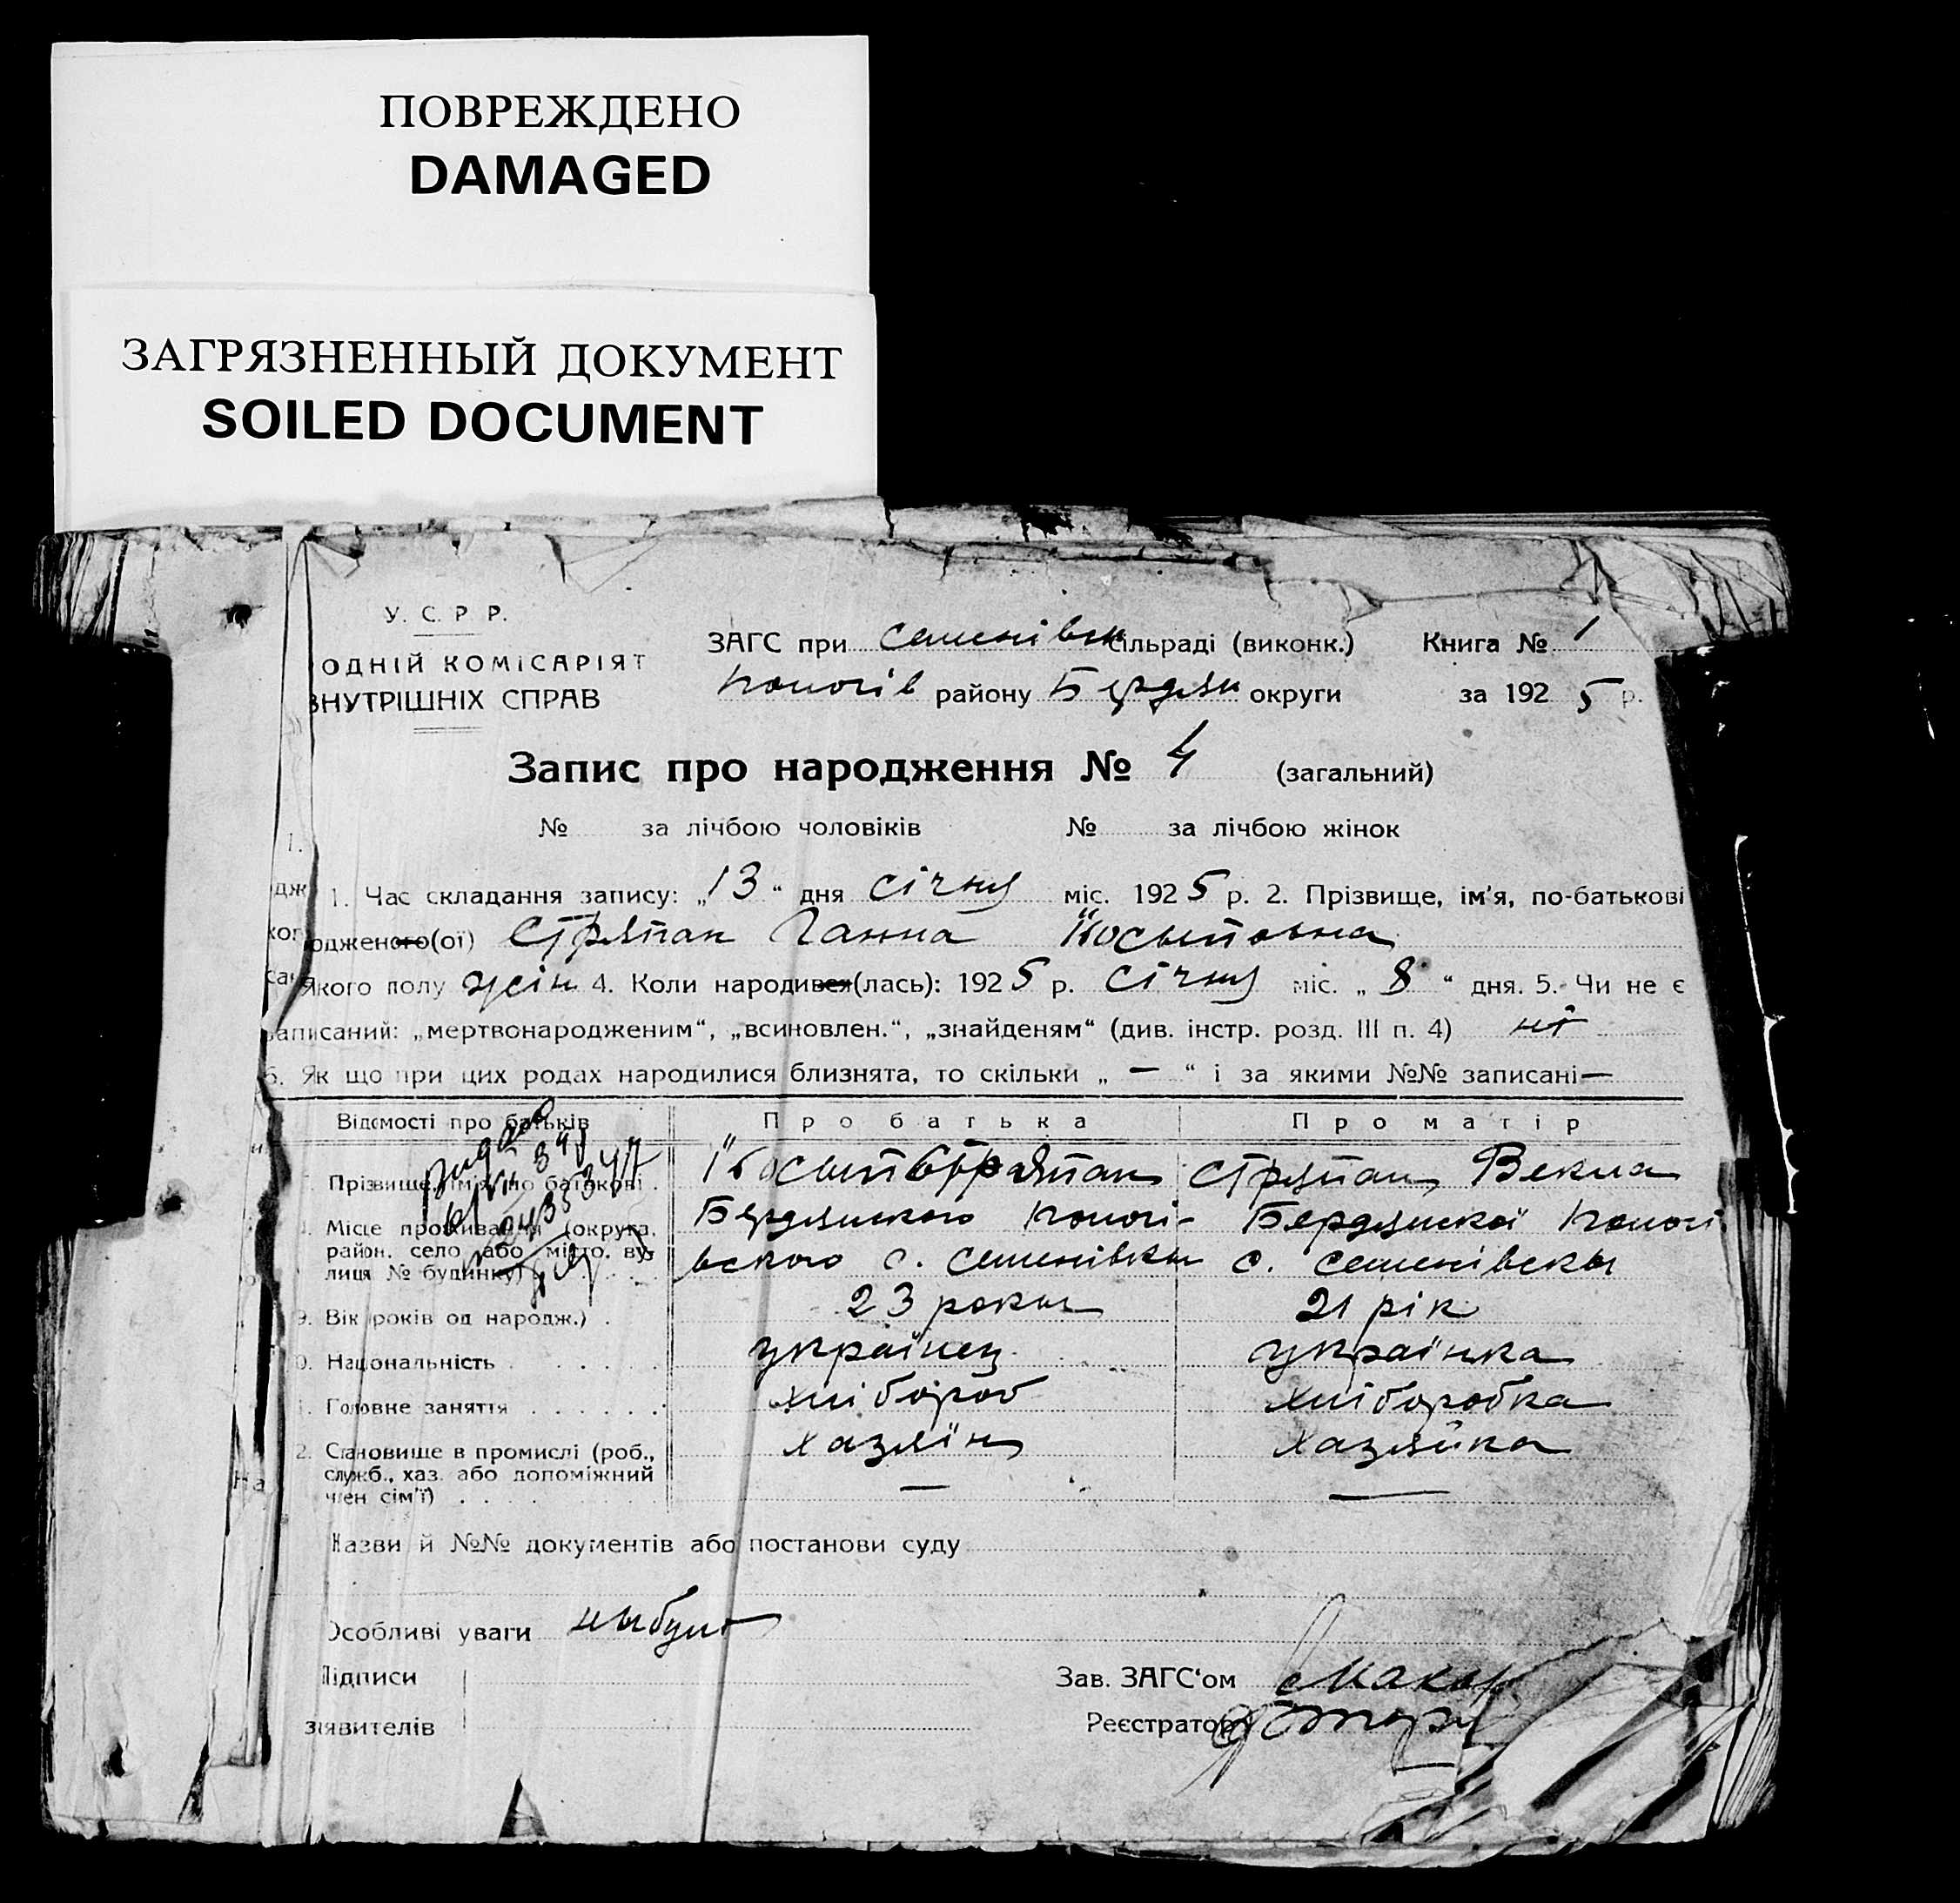 ПОВРЕЖДЕНО
DAMAGED
ЗАГРЯЗНЕННЫЙ ДОКУМЕНТ
SOILED DOCUMENT
У. С. Р. Р.
ОДНІЙ КОМІСАРІЯТ
ВНУТРІШНІХ СПРАВ
ЗАГС при Семенівськ сільраді (виконк.) Книга № 1
Пологів району Бердян округи за 192 5 р.
Запис про народження № 4 (загальний)
№ за лічбою чоловіків № за лічбою жінок
1. Час складання запису: „13“ дня січня міс. 1925 р. 2. Прізвище, ім'я, по-батькові
одженого(ої) Стряпан Ганна Йосыповна
Якого полу жін 4. Коли народився(лась): 1925 р. січня міс. „8“ дня. 5. Чи не є
записаний: „мертвонародженим“, „всиновлен.“, „знайденям“ (див. інстр. розд. III п. 4) ні
6. Як що при цих родах народилися близнята, то скільки „ — “ і за якими №№ записані —
Відомості про батьків Про батька Про матір
Прізвище, ім'я, по батькові Йосып Стряпан Стряпан Векла
Місце проживання (округа, Бердянського Пологі- Бердянської Пологі
район, село або місто, ву- вського с. Семенівкы с. Семенівскы
лиця № будинку)
9. Вік (років од народж.) 23 рокы 21 рік
0. Національність українец українка
1. Головне заняття хлібороб хліборобка
2. Становище в промислі (роб., хазяїн хазяйка
служб., хаз. або допоміжний
член сім'ї) — —
Назви й №№ документів або постанови суду
Особливі уваги ныбуло
Підписи Зав. ЗАГС'ом
заявителів Реєстратор